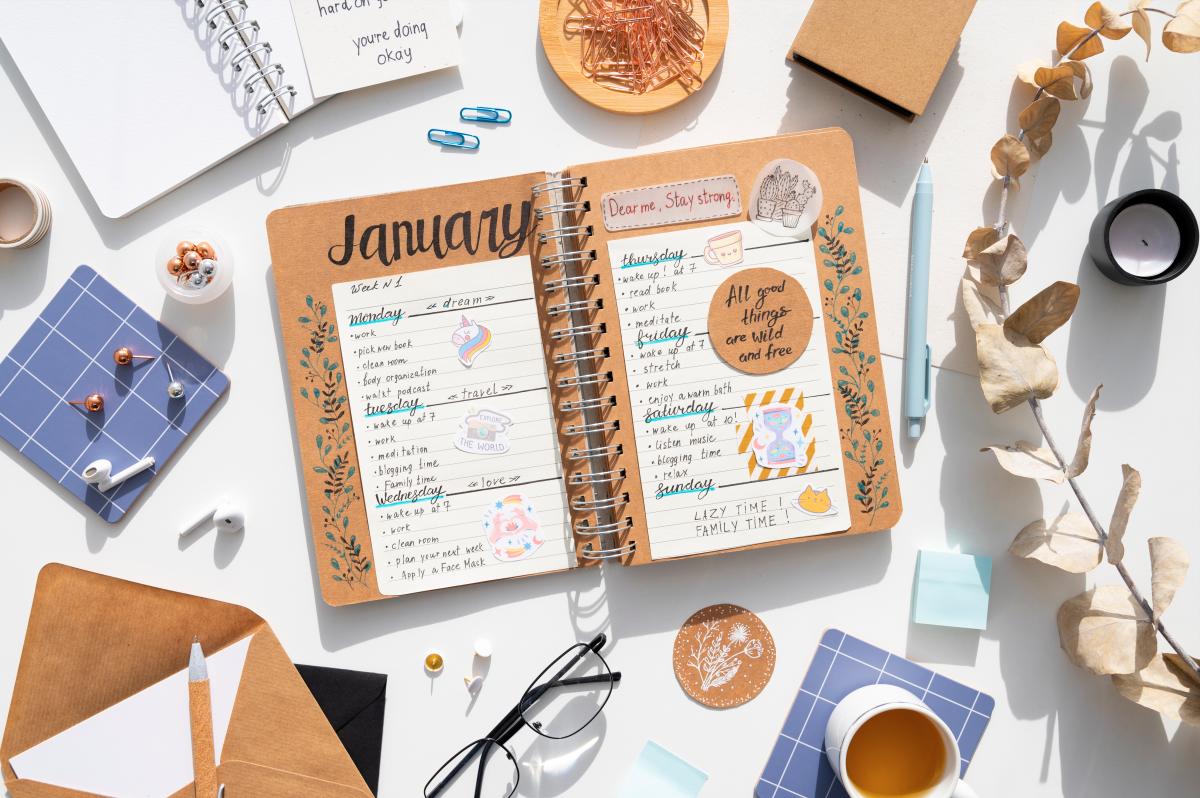 you're doing
okay
January
Week N 1
« dream »
monday
• work
• pick new book
• clean room
• body organization
• podcast
« travel »
tuesday
• wake up at 7
• work
• meditation
• blogging time
• Family time
« love »
Wednesday
• wake up at 7
• work
• clean room
• plan your next week
• Apply a Face Mask
EXPLORE
THE WORLD
Dear me, Stay strong.
thursday
• wake up! at 7
• read book
• work
• meditate
friday
• wake up at 7
• stretch
• work
• enjoy a warm bath
saturday
• wake up at 10!
• listen music
• blogging time
• relax
sunday
LAZY TIME !
FAMILY TIME !
All good
things
are wild
and free